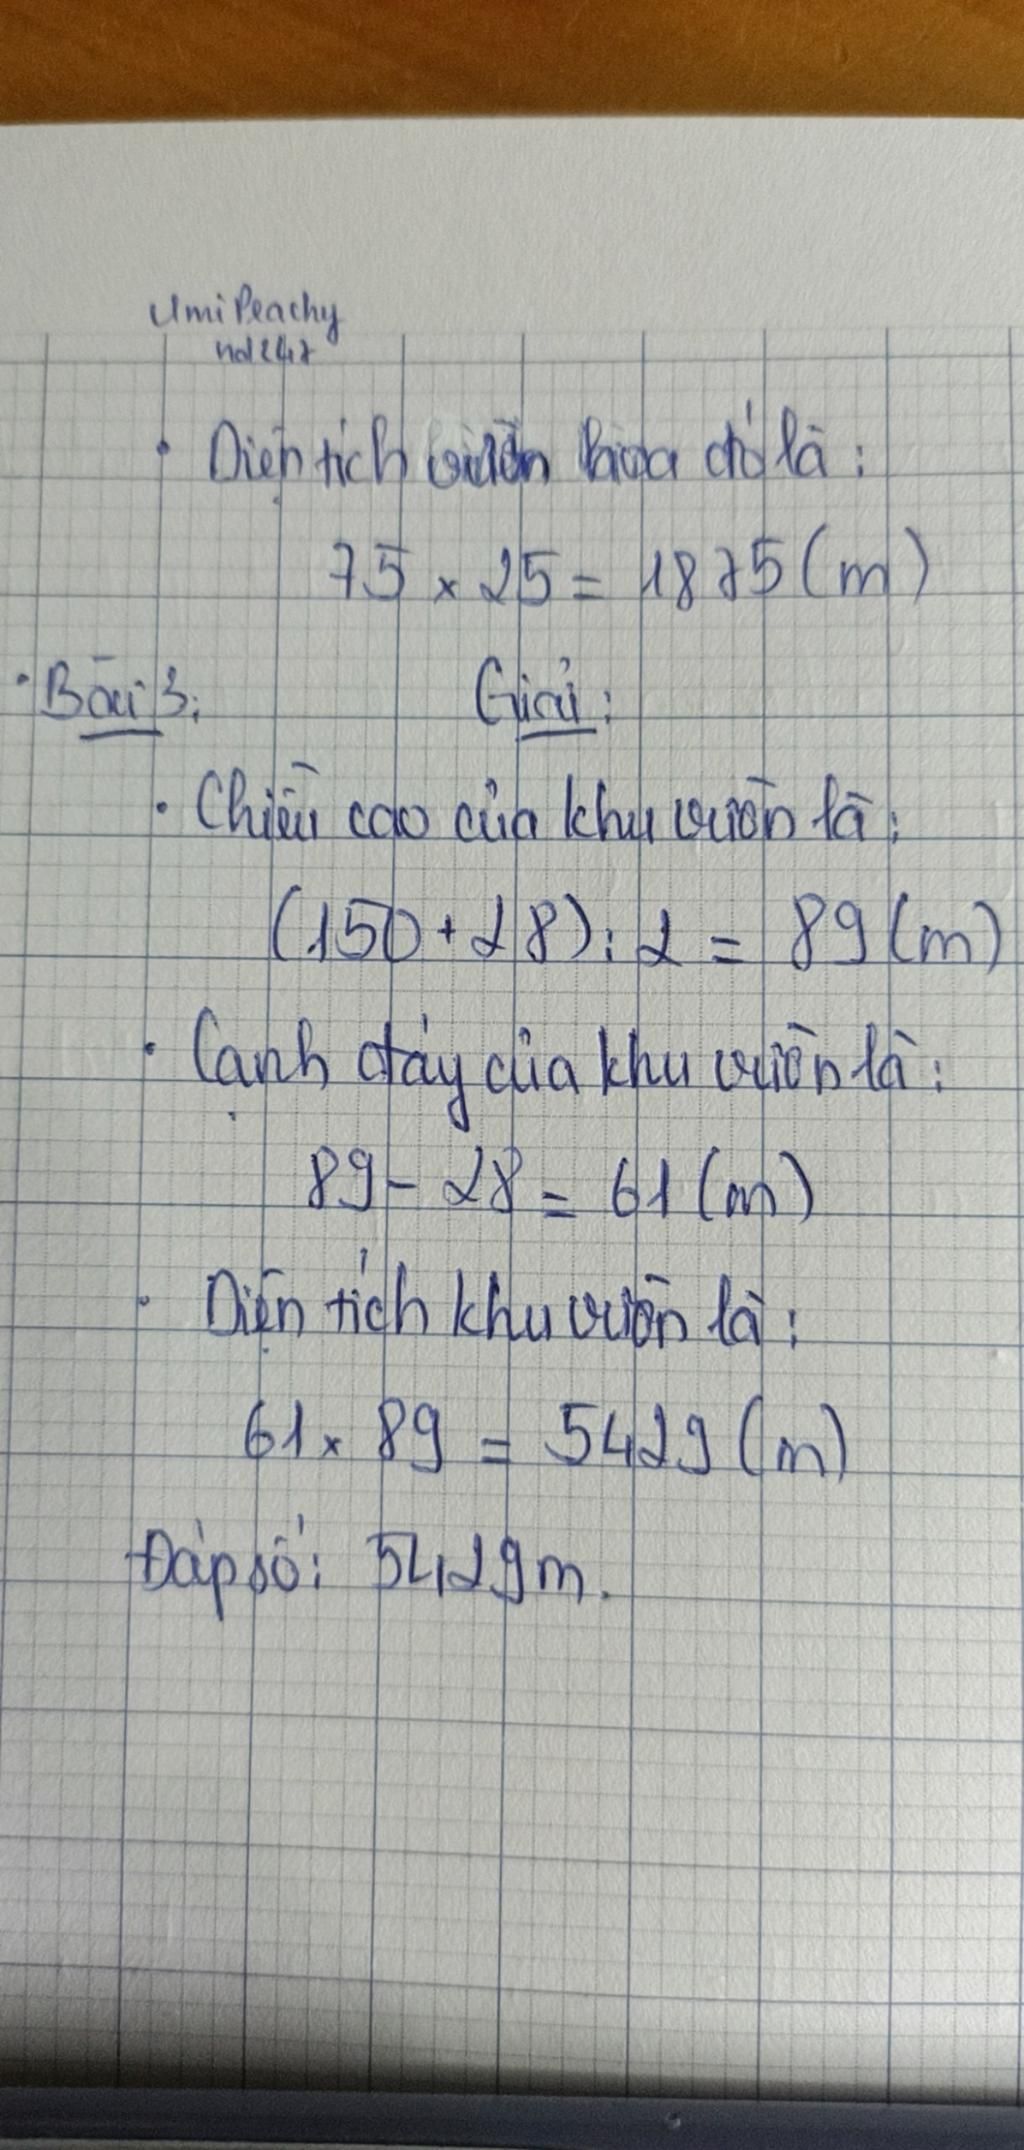 Umi Peachy
• Diện tích vườn hoa đó là:
75 × 25 = 1875 (m)
• Bài 3: Giải:
• Chiều cao của khu vườn là:
(150 + 28) : 2 = 89 (m)
• Cạnh đáy của khu vườn là:
89 - 28 = 61 (m)
• Diện tích khu vườn là:
61 × 89 = 5429 (m)
Đáp số: 5429 m.